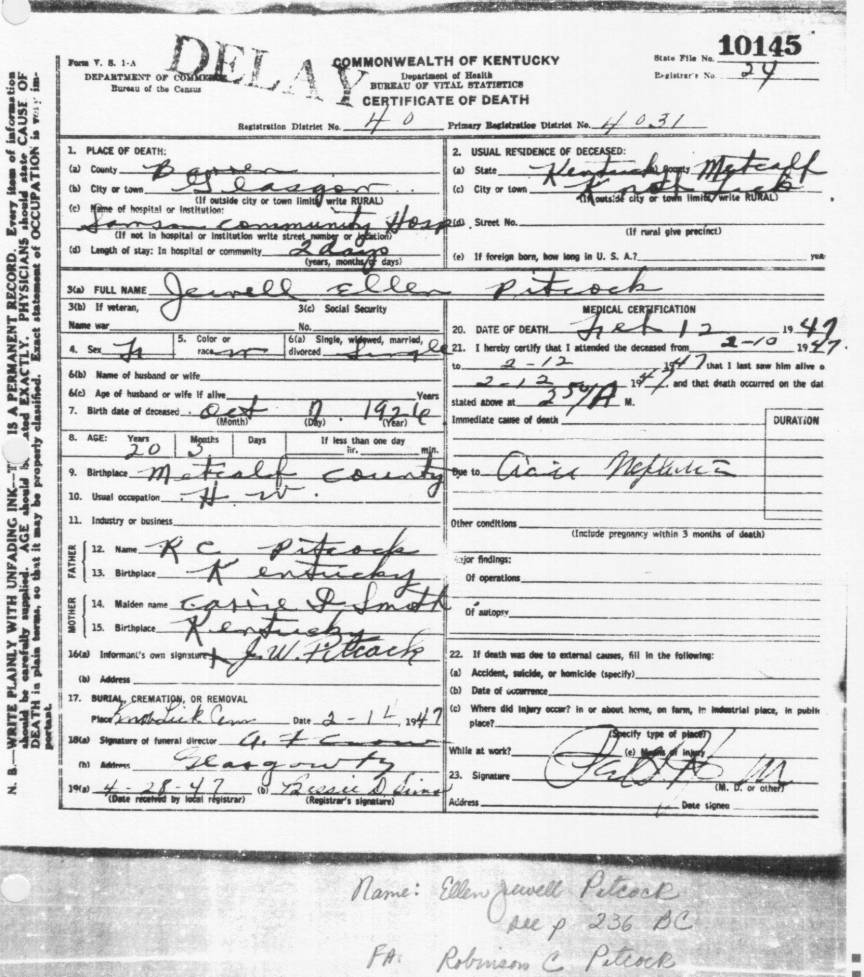 DELAY
Form V. S. 1-A
DEPARTMENT OF COMMERCE
Bureau of the Census
COMMONWEALTH OF KENTUCKY
Department of Health
BUREAU OF VITAL STATISTICS
CERTIFICATE OF DEATH
State File No. 10145
Registrar's No. 24
Registration District No. 40 Primary Registration District No. 4031
N. B.—WRITE PLAINLY WITH UNFADING INK— IS A PERMANENT RECORD. Every item of information
should be carefully supplied. AGE should be stated EXACTLY. PHYSICIANS should state CAUSE OF
DEATH in plain terms, so that it may be properly classified. Exact statement of OCCUPATION is very im-
portant.
1. PLACE OF DEATH:
(a) County Barren
(b) City or town Glasgow
(If outside city or town limits, write RURAL)
(c) Name of hospital or institution:
Samson Community Hosp
(If not in hospital or institution write street number or location)
(d) Length of stay: In hospital or community 2 days
(years, months or days)
2. USUAL RESIDENCE OF DECEASED:
(a) State Kentucky County Metcalf
(c) City or town Knob Lick
(If outside city or town limits, write RURAL)
(d) Street No.
(If rural give precinct)
(e) If foreign born, how long in U. S. A.? years
3(a) FULL NAME Jewell Ellen Pitcock
3(b) If veteran,
Name war
3(c) Social Security
No.
4. Sex F
5. Color or
race W
6(a) Single, widowed, married,
divorced Single
6(b) Name of husband or wife
6(c) Age of husband or wife if alive Years
7. Birth date of deceased Oct 7 1926
(Month) (Day) (Year)
8. AGE: Years Months Days If less than one day
20 3 hr. min.
9. Birthplace Metcalf County
10. Usual occupation H. W.
11. Industry or business
FATHER
12. Name R C Pitcock
13. Birthplace Kentucky
MOTHER
14. Maiden name Smith
15. Birthplace Kentucky
16(a) Informant's own signature J. W. Pitcock
(b) Address
17. BURIAL, CREMATION, OR REMOVAL
Place Knob Lick Cem Date 2-1 , 1947
18(a) Signature of funeral director
(b) Address Glasgow Ky
19(a) 4-28-47 (b) Bessie D.
(Date received by local registrar) (Registrar's signature)
MEDICAL CERTIFICATION
20. DATE OF DEATH Feb 12 1947
21. I hereby certify that I attended the deceased from 2-10 1947
to 2-12 1947 that I last saw him alive o
2-12 1947 and that death occurred on the dat
stated above at A M.
Immediate cause of death DURATION
Due to Nephritis
Other conditions
(Include pregnancy within 3 months of death)
Major findings:
Of operations
Of autopsy
22. If death was due to external causes, fill in the following:
(a) Accident, suicide, or homicide (specify)
(b) Date of occurrence
(c) Where did injury occur? in or about home, on farm, in industrial place, in public
place?
(Specify type of place)
While at work? (e) Means of injury
23. Signature
(M. D. or other)
Address Date signed
Name: Ellen Jewell Pitcock
see p 236 BC
FA: Robinson C Pitcock